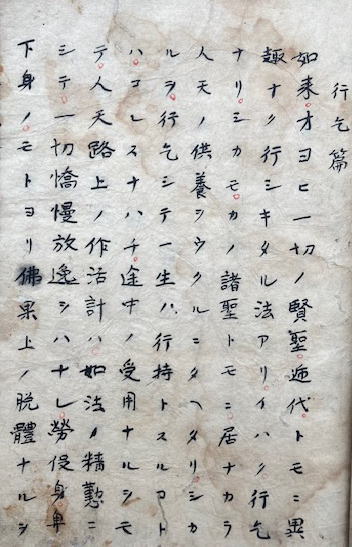 行乞篇
如来オヨヒ一切ノ賢聖遞代トモニ異
趣ナク行シキタル法アリイハク行乞
ナリシカモカノ諸聖トモニ居ナカラ
人天ノ供養ヲウクルニタヘタリシカ
ルヲ行乞シテ一生ハ行持トスルコト
ハコレスナハチ途中ノ受用ナルシモ
テ人天路上ノ作活計ハ如法ノ精勤ニ
シテ一切憍慢放逸シハナレ勞侵身卑
下身ノモトヨリ佛果上ノ脱體ナルシ